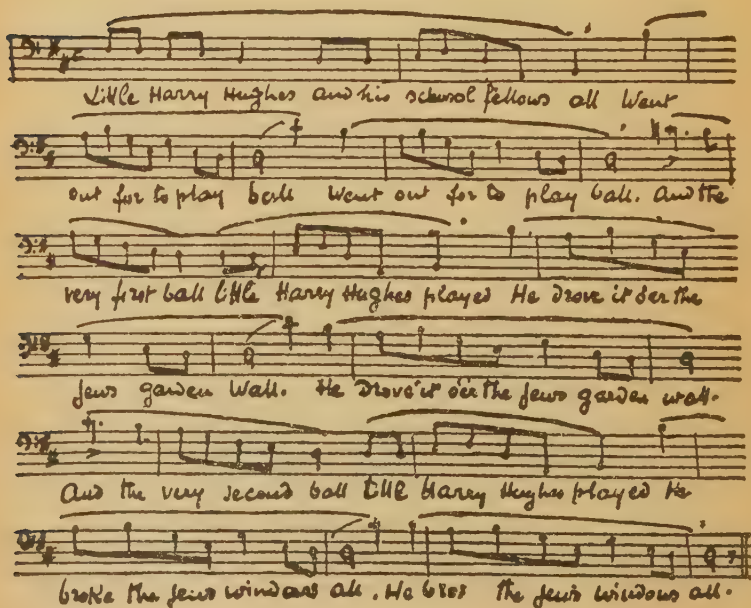 Little Harry Hughes and his school fellows all Went
out for to play ball Went out for to play ball. And the
very first ball little Harry Hughes played He drove it o'er the
jews garden wall. He drove it o'er the jews garden wall.
And the very second ball little Harry Hughes played He
broke the jews windows all. He broke the jew's windows all.